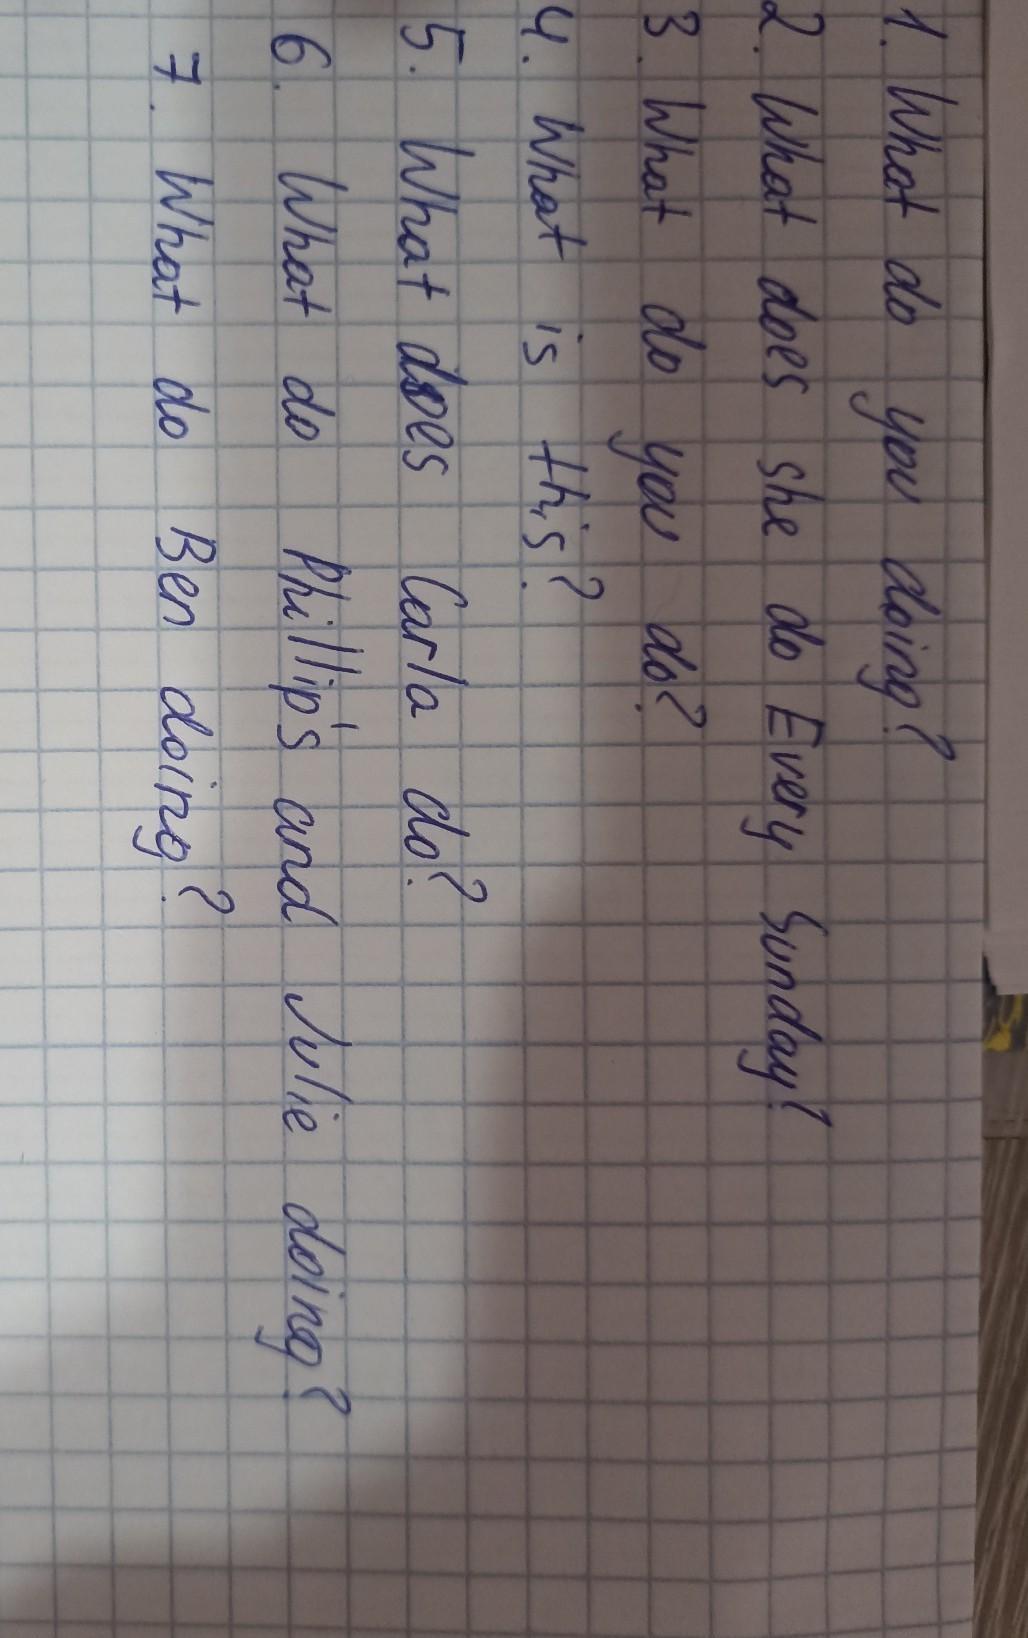 1. What do you doing?
2. What does she do Every Sunday?
3. What do you do?
4. What is this?
5. What does Carla do?
6. What do Phillip's and Julie doing?
7. What do Ben doing?